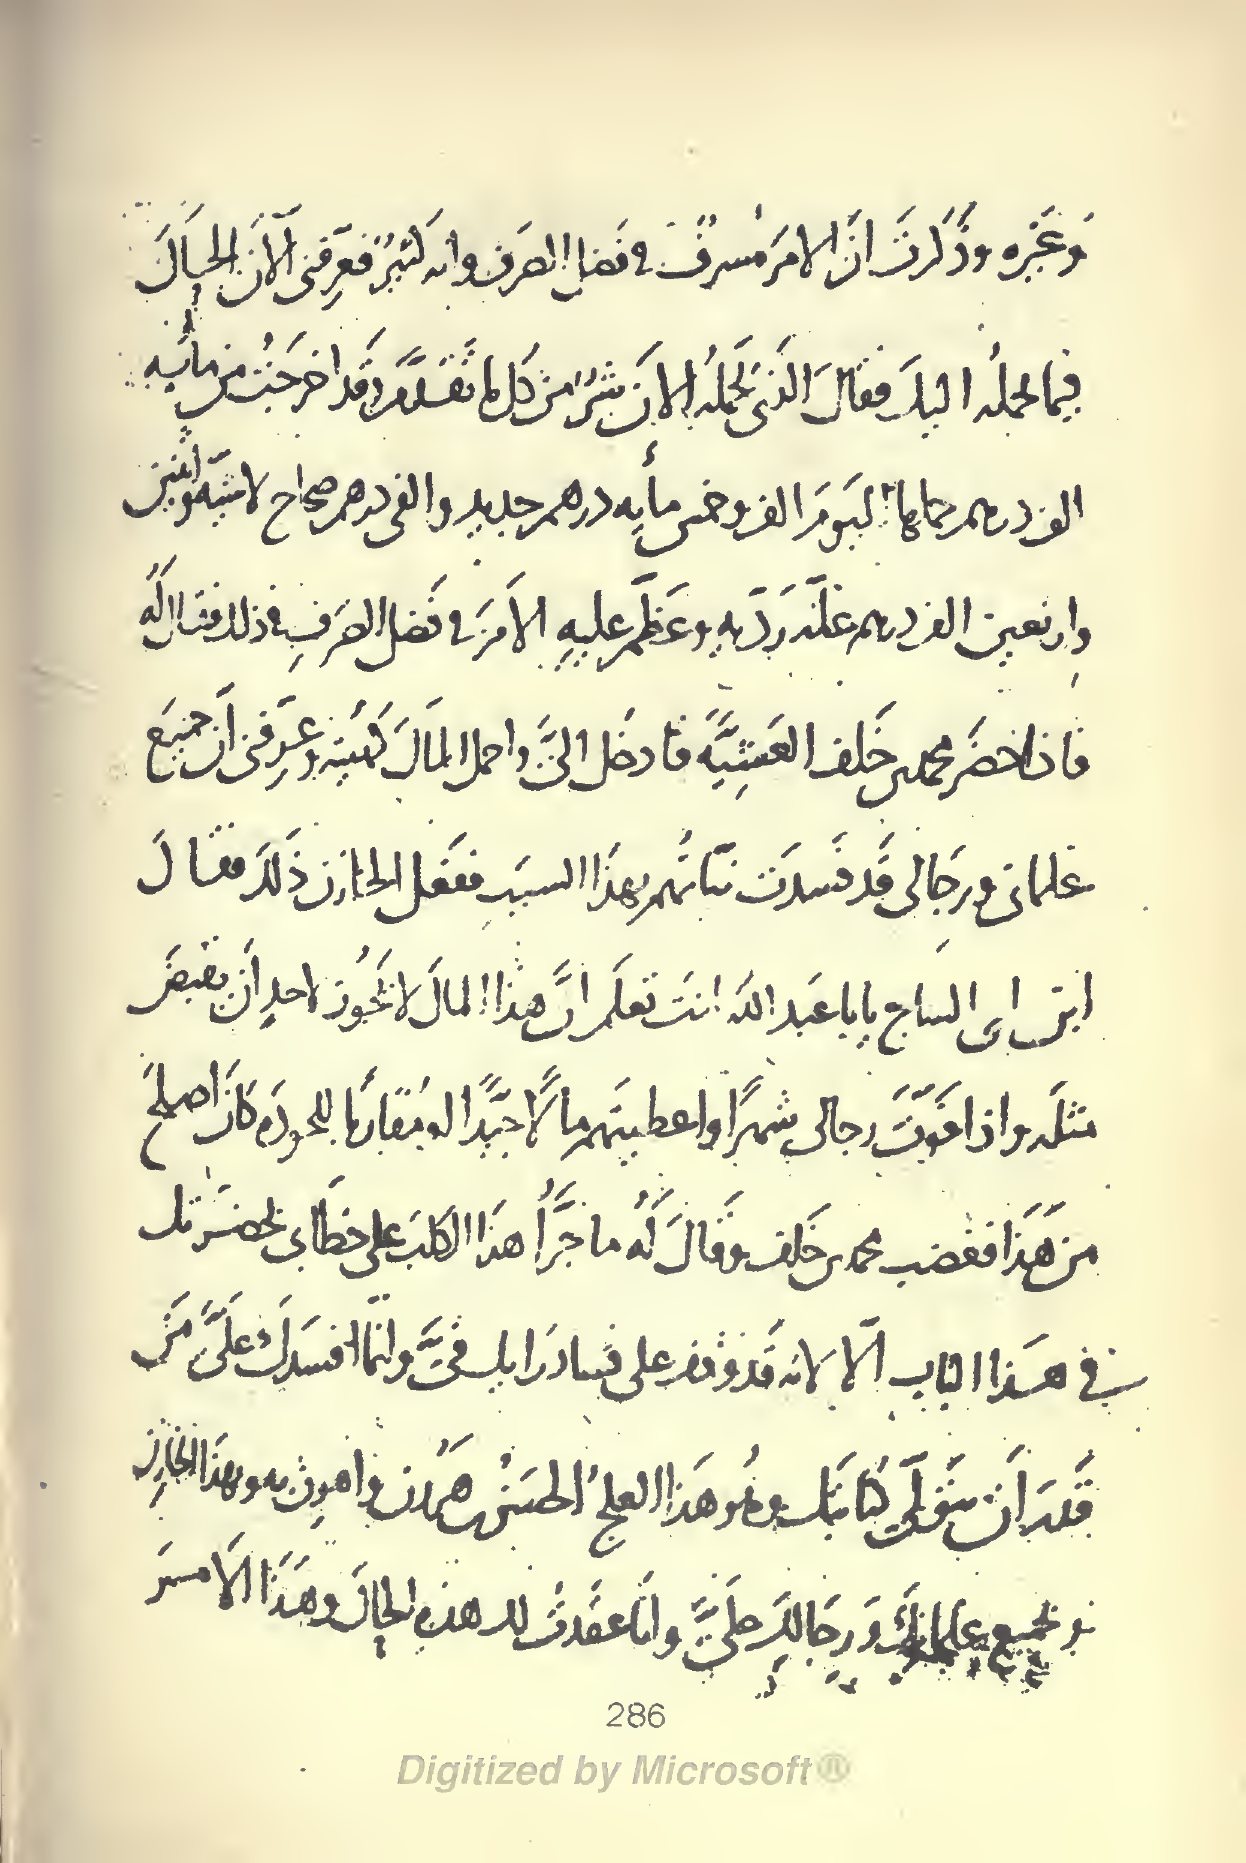 وغيره وذكرت ان الامر مسرف في فضل الصرف وانه كثير فعرفني الآن الحال
فيما تحمله اليك فقال الذي تحمله الآن شر من كل ما تقدم وقد اخرجت من مايه
الف درهم حملها اليوم الف وخمس مايه درهم جديد والفي درهم صحاح لاستة واثنين
واربعين الف درهم غلة ردية وعظم عليه الامر في فضل الصرف في ذلك فقال له
فاذا حضر محمد بن خلف العشية فادخل الي واحمل المال كهيئته وعرفني ان جميع
غلماني ورجالي قد فسدت نياتهم بهذا السبب ففعل الخازن ذلك فقال
ابن ابي الساج يابا عبد الله انت تعلم ان هذا المال لا يجوز لاحد ان يقبض
مثله واذا فوت رجالي شهرا واعطيتهم مالا جيدا او مقاربا للجودة كان اصلح
من هذا فغضب محمد بن خلف وقال له ما جرأ هذا الكلب على خطابي بحضرتك
في هذا الباب الا لانه قد وقف على فساد رايك في وانما افسدك علي من
قدر ان يتولى كتابتك وهو هذا العلج الحسن بن هرون واهون به وبهذا الخازن
وبجميع غلمانك ورجالك علي وانا عقدت لك هذه الحال وهذا الامر
286
Digitized by Microsoft®